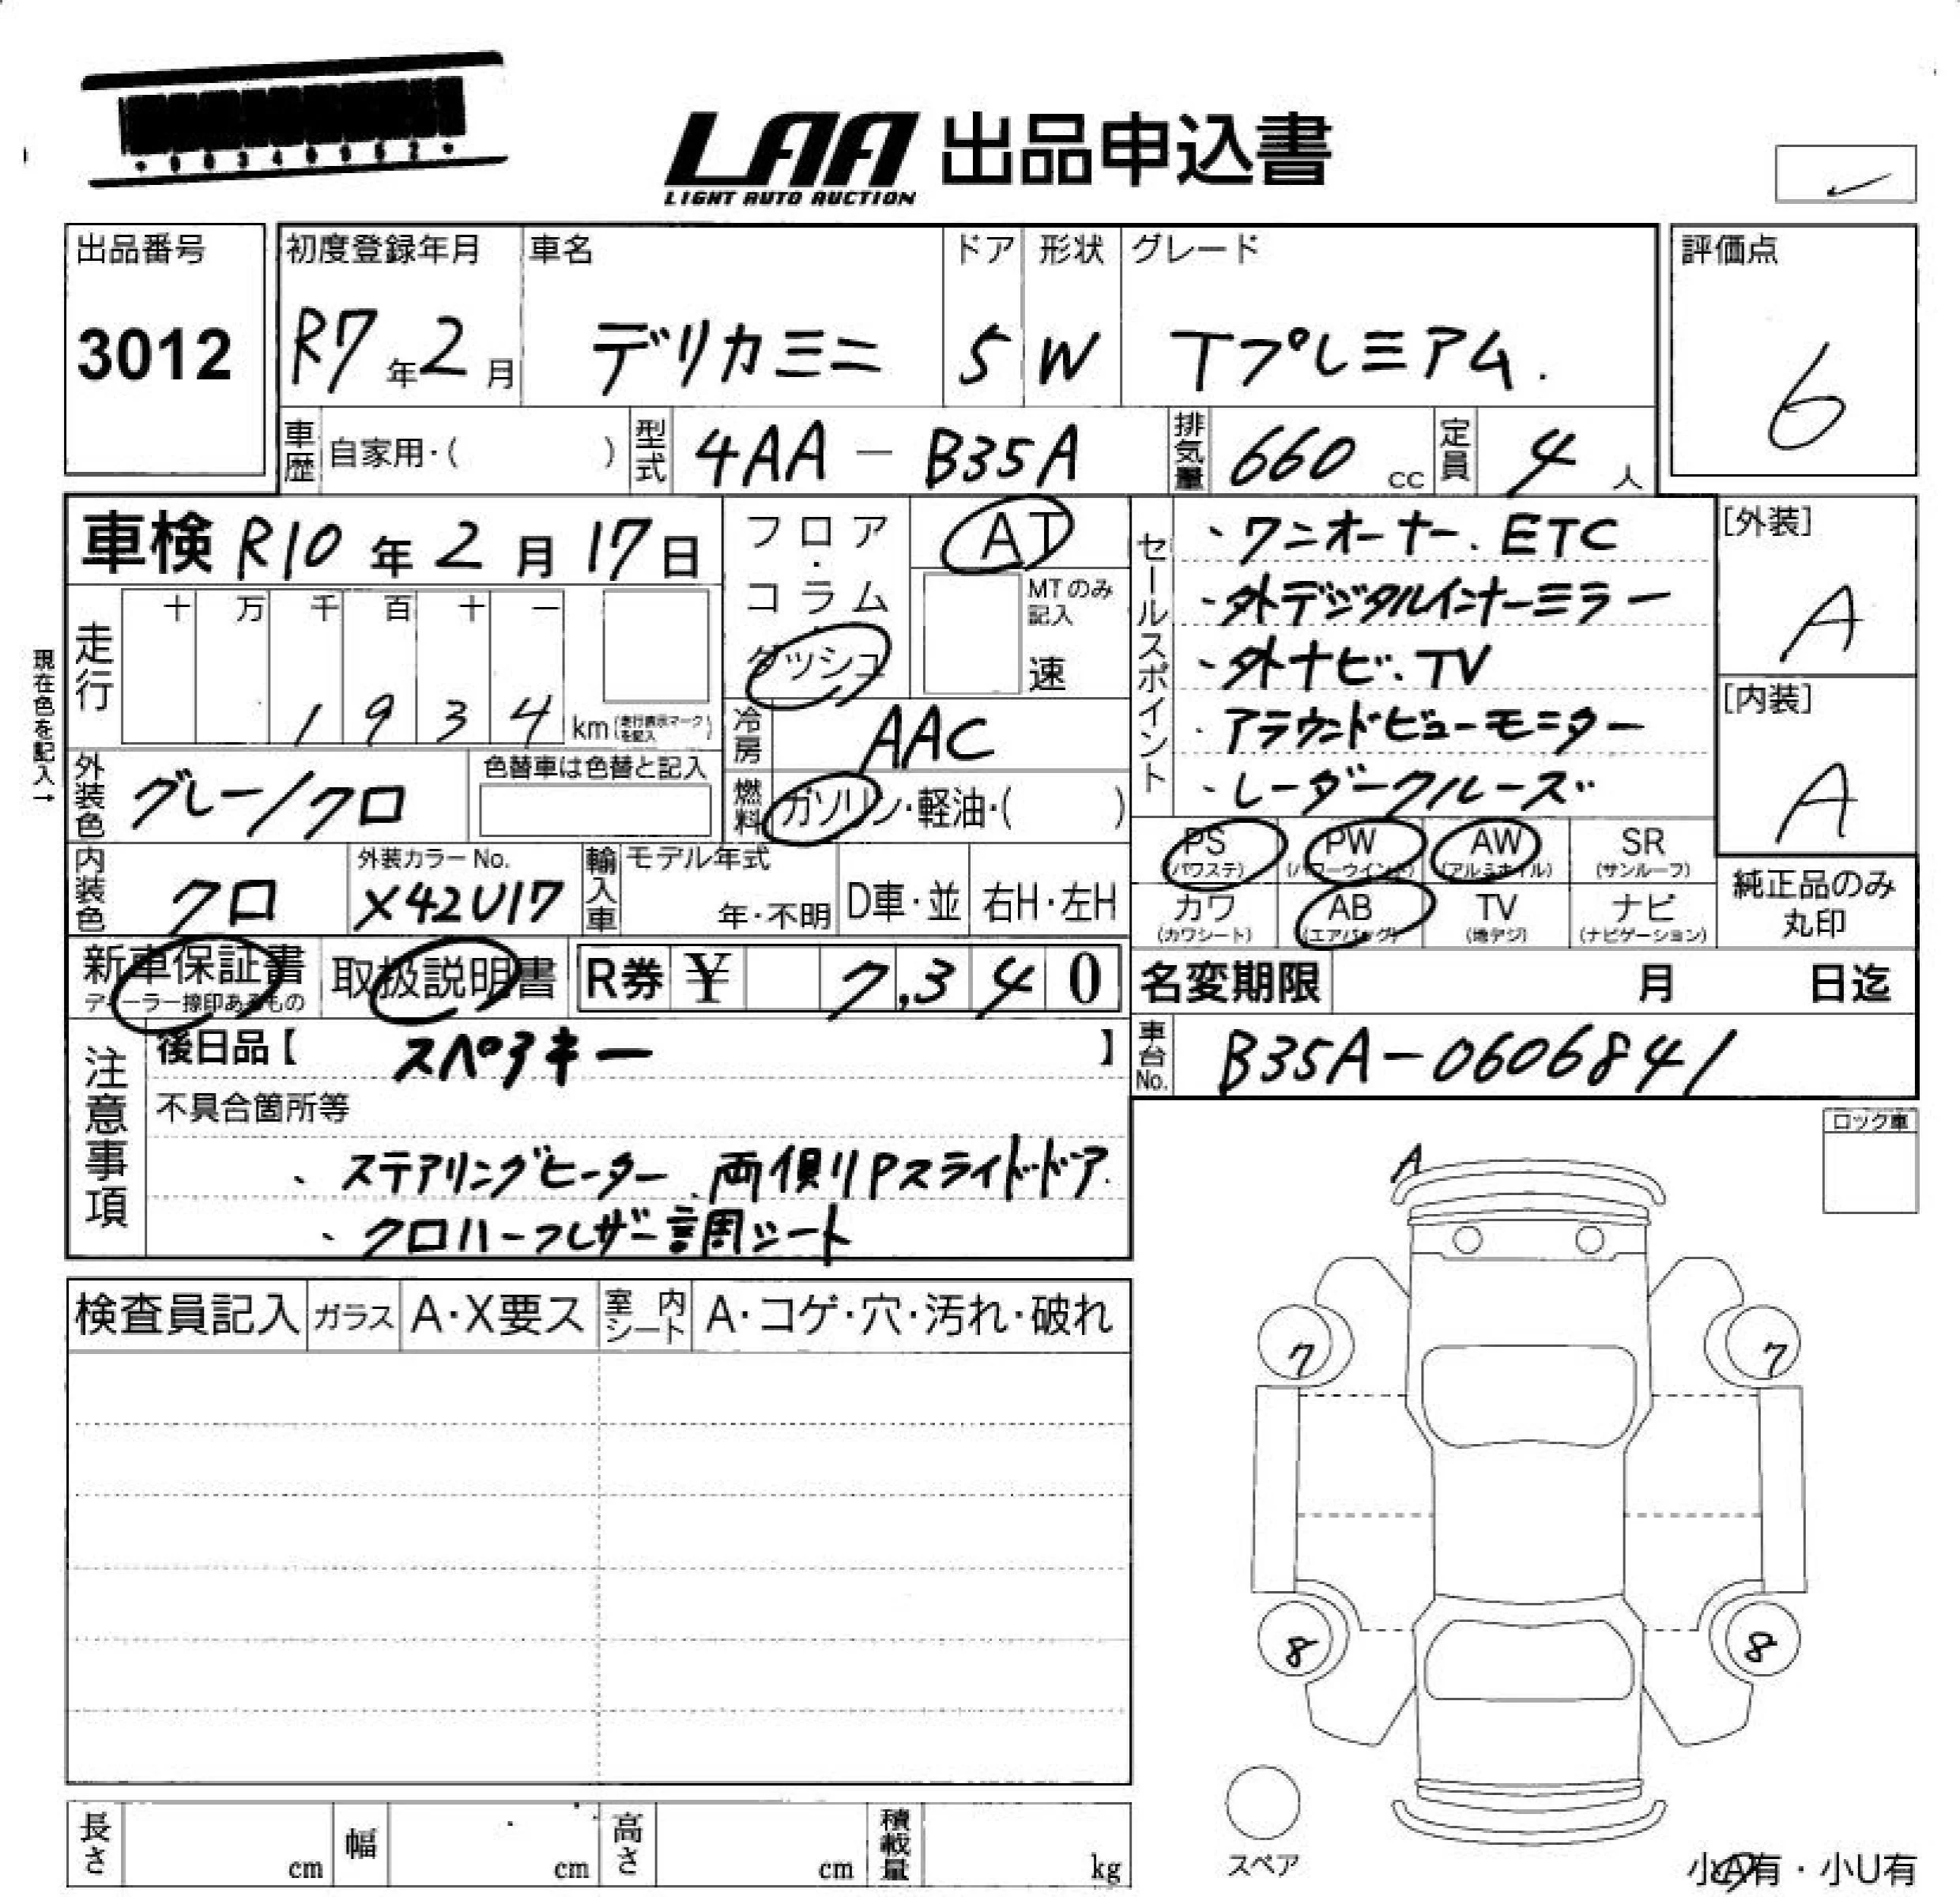 LAA 出品申込書
LIGHT AUTO AUCTION
出品番号
3012
初度登録年月
R7年2月
車名
デリカミニ
ドア
5
形状
W
グレード
Tプレミアム.
評価点
6
車歴 自家用・( )
型式 4AA－B35A
排気量 660 cc
定員 4 人
車検 R10年2月17日
走行 十 万 千 百 十 一
1 9 3 4 km (走行表示マークを記入)
現在色を記入→
フロア・コラム
ダッシュ
AT
MTのみ記入
速
冷房 AAC
燃料 ガソリン・軽油・( )
外装色 グレー/クロ
色替車は色替と記入
内装色 クロ
外装カラーNo.
X42U17
輸入車 モデル年式
年・不明
D車・並
右H・左H
セールスポイント
・ワンオーナー、ETC
・外デジタルインナーミラー
・外ナビ、TV
・アラウンドビューモニター
・レーダークルーズ
[外装]
A
[内装]
A
PS (パワステ)
PW (パワーウインド)
AW (アルミホイル)
SR (サンルーフ)
カワ (カワシート)
AB (エアバッグ)
TV (地デジ)
ナビ (ナビゲーション)
純正品のみ
丸印
新車保証書
ディーラー捺印あるもの
取扱説明書
R券 ¥ 7,340
名変期限 月 日迄
車台No. B35A-0606841
注意事項
後日品【 スペアキー 】
不具合箇所等
、ステアリングヒーター、両側Pスライドドア.
、クロハーフレザー調シート
ロック車
A
検査員記入
ガラス A・X要ス
室内シート A・コゲ・穴・汚れ・破れ
7
7
8
8
スペア
長さ cm
幅 cm
高さ cm
積載量 kg
小A有・小U有